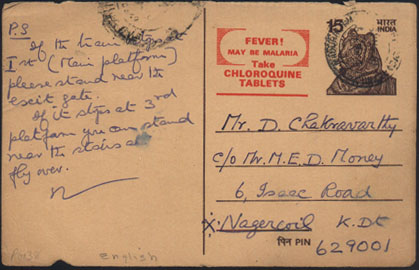 P.S
If the train stops at
Ist (Main platform)
please stand near the
exit gate.
If it stops at 3rd
platform you can stand
near the stairs
fly over.
FEVER!
MAY BE MALARIA
Take
CHLOROQUINE
TABLETS
15
भारत
INDIA
Mr. D. Chakravarthy
C/o Mr. M.E.D. Money
6, Isaac Road
x Nagercoil K. Dt
पिन PIN 629001
english